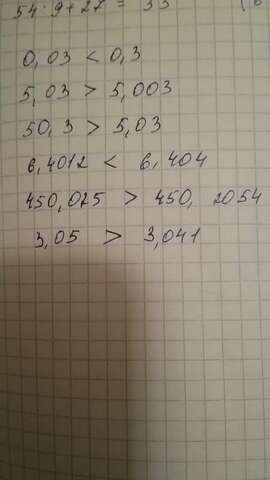 54·9+27 = 33
0,03 < 0,3
5,03 > 5,003
50,3 > 5,03
6,4012 < 6,404
450,025 > 450, 2054
3,05 > 3,041